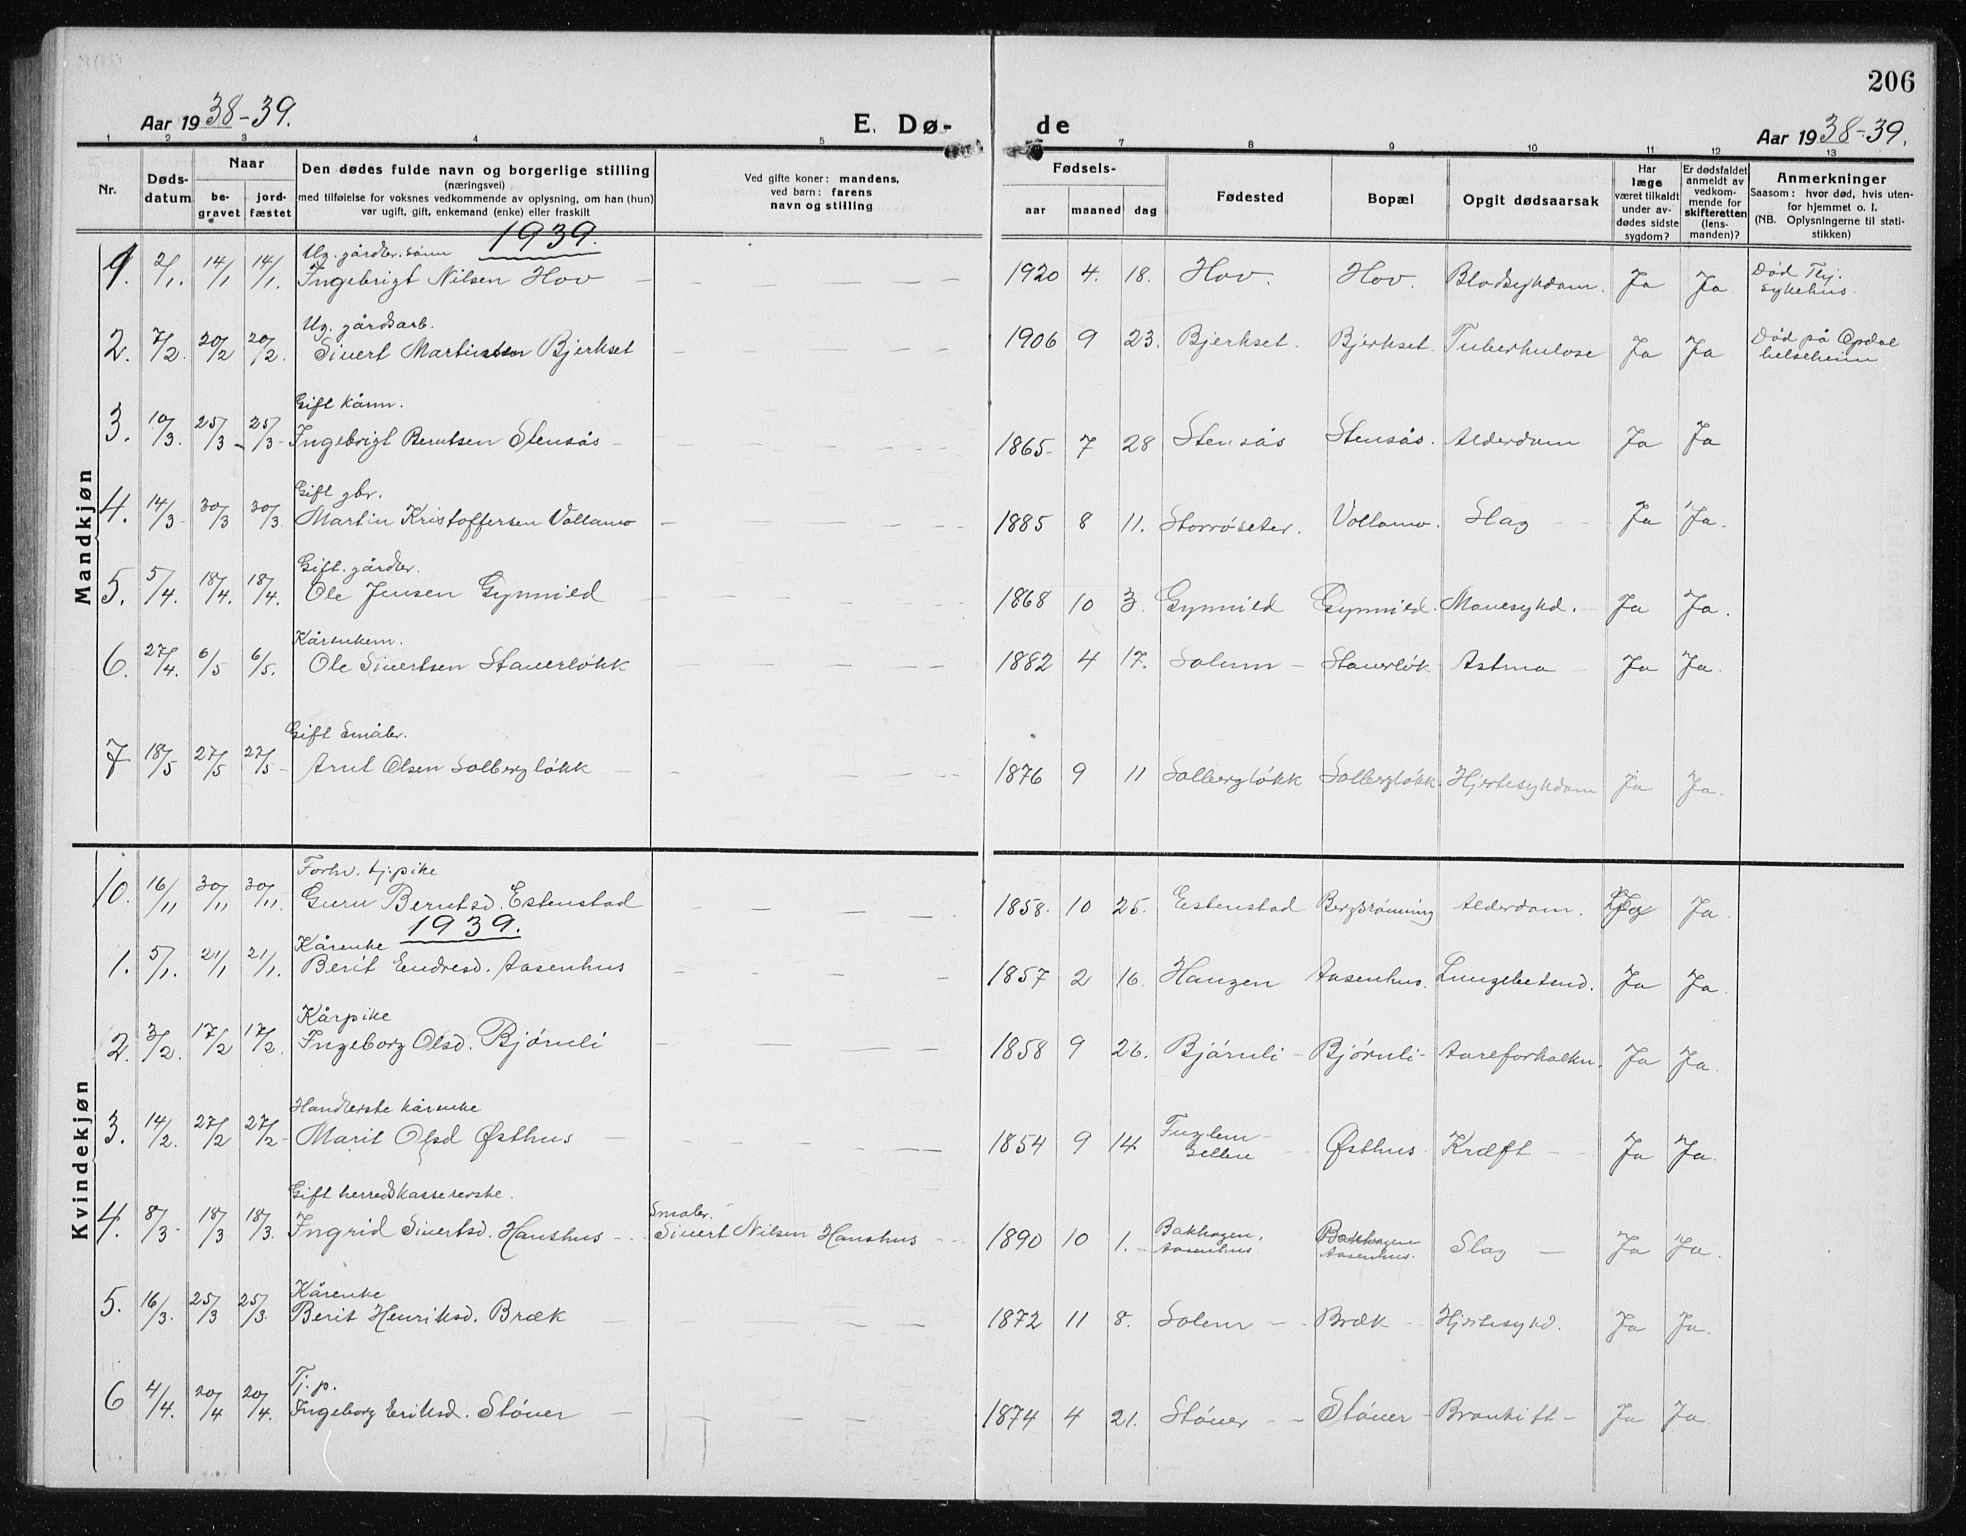 206
Aar 1938-39.
E. Dø-
de
Aar 1938-39.
1 2 3 4 5 7 8 9 10 11 12 13
Nr.
Døds-
datum
Naar
be-
gravet
jord-
fæstet
Den dødes fulde navn og borgerlige stilling
(næringsvei)
med tilføielse for voksnes vedkommende av oplysning, om han (hun)
var ugift, gift, enkemand (enke) eller fraskilt
Ved gifte koner: mandens,
ved barn: farens
navn og stilling
Fødsels-
aar maaned dag
Fødested
Bopæl
Opgit dødsaarsak
Har
læge
været tilkaldt
under av-
dødes sidste
sygdom?
Er dødsfaldet
anmeldt av
vedkom-
mende for
skifteretten
(lens-
manden)?
Anmerkninger
Saasom: hvor død, hvis uten-
for hjemmet o. l.
(NB. Oplysningerne til stati-
stikken)
Mandkjøn
1939.
Ug. gårdbr. sønn
1. 2/1. 14/1 14/1. Ingebrigt Nilsen Hov 1920 4. 18. Hov. Hov. Blodsykdom. Ja Ja Død Thj. sykehus.
Ug. gårdsarb.
2. 7/2. 20/2 20/2. Sivert Martinsen Bjerkset 1906 9 23. Bjerkset. Bjerkset. Tuberkulose Ja Ja Død på Opdal helseheim
Gift kårm.
3. 10/3. 25/3 25/3 Ingebrigt Berntsen Stensås 1865 7 28 Stensås Stensås. Alderdom Ja Ja
Gift gbr.
4. 14/3 30/3 30/3 Martin Kristoffersen Vollamo 1885 8 11. Storrøseter. Vollamo. Slag Ja Ja.
Gift. gårdbr.
5. 5/4. 18/4. 18/4. Ole Jensen Gynnild 1868 10 3. Gynnild Gynnild. Mavesykd. Ja Ja.
Kårenkem.
6. 27/4. 6/5 6/5. Ole Sivertsen Staverløkk 1882 4 17. Solem Staverløk Astma Ja Ja.
Gift småbr.
7 18/5 27/5 27/5 Arnt Olsen Solbergløkk 1876 9 11 Solbergløkk Solbergløkk. Hjertesykdom Ja Ja.
Kvindekjøn
Forhv. tj.pike
10. 16/11 30/11 30/11. Guru Berntsd. Estenstad 1858. 10 25. Estenstad Bergsrønning Alderdom. Ja
1939.
Kårenke
1. 5/1. 21/1 21/1. Berit Endresd. Aasenhus 1857 2 16. Haugen Aasenhus. Lungebetend. Ja Ja.
Kårpike
2. 3/2. 17/2 17/2. Ingeborg Olsd. Bjørnli 1858 9 26. Bjørnli Bjørnli Aareforkalkn. Ja Ja.
Handlerske kårenke
3. 14/2. 27/2 27/2 Marit Olsd Østhus 1854 9 14. Østhus Kræft Ja Ja.
Gift herredskassererske.
4. 8/3 18/3 18/3. Ingrid Sivertsd. Hanshus Småbr. Sivert Nilsen Hanshus 1890 10 1. Bakhagen, Aasenhus. Bakhagen Aasenhus. Slag Ja Ja.
Kårenke
5. 16/3. 25/3 25/3. Berit Henriksd. Bræk 1872 11 8. Solem Bræk Hjertesykd. Ja Ja.
Tj. p.
6 4/4. 20/4 20/4. Ingeborg Eriksd. Støver 1874 4 21. Støver Støver Bronkitt Ja Ja.